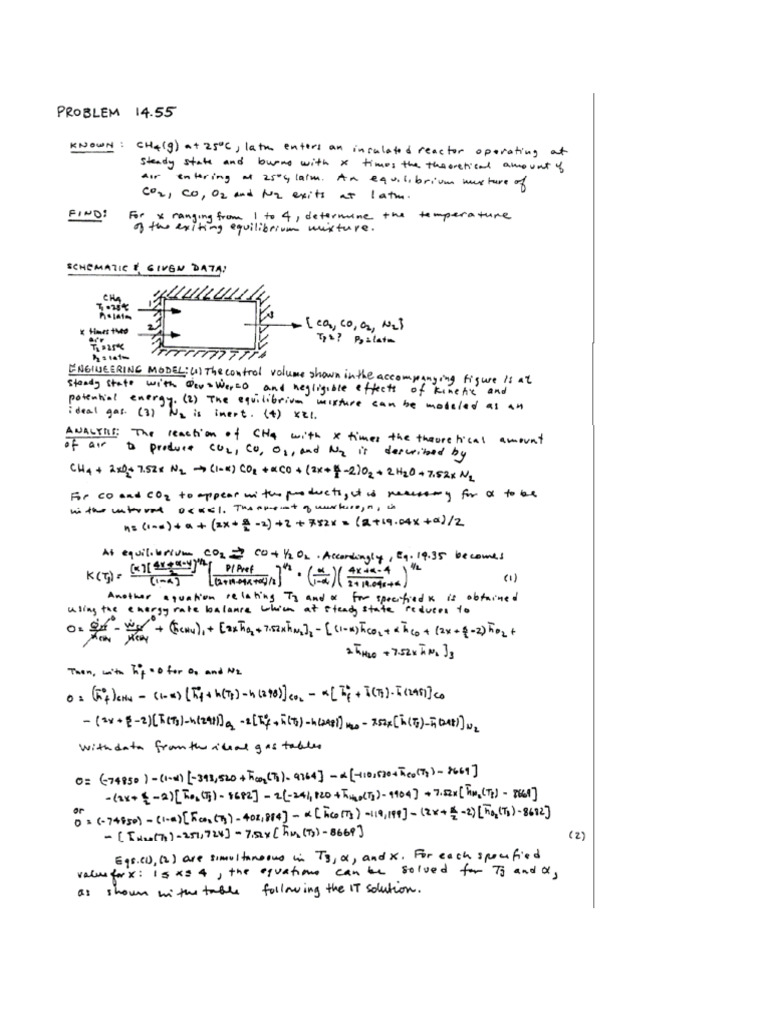 PROBLEM 14.55
KNOWN: CH4(g) at 25°C, 1atm enters an insulated reactor operating at
steady state and burns with x times the theoretical amount of
air entering at 25°C, 1atm. An equilibrium mixture of
CO2, CO, O2 and N2 exits at 1atm.
FIND: For x ranging from 1 to 4, determine the temperature
of the exiting equilibrium mixture.
SCHEMATIC & GIVEN DATA:
CH4
T1=25°C
P1=1atm
1
x times theo
air
T2=25°C
P2=1atm
2
3
[CO2, CO, O2, N2]
T3? P3=1atm
ENGINEERING MODEL: (1) The control volume shown in the accompanying figure is at
steady state with Q̇cv=Ẇcv=0 and negligible effects of kinetic and
potential energy. (2) The equilibrium mixture can be modeled as an
ideal gas. (3) N2 is inert. (4) x≥1.
ANALYSIS: The reaction of CH4 with x times the theoretical amount
of air to produce CO2, CO, O2, and N2 is described by
CH4 + 2xO2 + 7.52x N2 → (1-α) CO2 + αCO + (2x + α/2 - 2)O2 + 2H2O + 7.52x N2
For CO and CO2 to appear in the products, it is necessary for α to be
in the interval 0<α<1. The amount of mixture, n, is
n = (1-α) + α + (2x + α/2 - 2) + 2 + 7.52x = (2+19.04x+α)/2
At equilibrium CO2 ⇌ CO + 1/2 O2. Accordingly, Eq. 14.35 becomes
K(T3) = [α][(4x+α-4)/2]^1/2 / (1-α) [P/Pref / (2+19.04x+α)/2]^1/2 = (α/1-α) (4x+α-4 / 2+19.04x+α)^1/2 (1)
Another equation relating T3 and α for specified x is obtained
using the energy rate balance which at steady state reduces to
0 = Q̇cv/ṅCH4 - Ẇcv/ṅCH4 + (h̄CH4)1 + [2x h̄O2 + 7.52x h̄N2]2 - [(1-α) h̄CO2 + α h̄CO + (2x + α/2 - 2) h̄O2 +
2 h̄H2O + 7.52x h̄N2]3
Then, with h̄f° = 0 for O2 and N2
0 = (h̄f°)CH4 - (1-α) [h̄f° + h̄(T3) - h̄(298)]CO2 - α[h̄f° + h̄(T3) - h̄(298)]CO
- (2x + α/2 - 2)[h̄(T3) - h̄(298)]O2 - 2[h̄f° + h̄(T3) - h̄(298)]H2O - 7.52x[h̄(T3) - h̄(298)]N2
With data from the ideal gas tables
0 = (-74850) - (1-α)[-393,520 + h̄CO2(T3) - 9364] - α[-110,520 + h̄CO(T3) - 8669]
- (2x + α/2 - 2)[h̄O2(T3) - 8682] - 2[-241,820 + h̄H2O(T3) - 9904] + 7.52x[h̄N2(T3) - 8669]
or
0 = (-74850) - (1-α)[h̄CO2(T3) - 402,884] - α[h̄CO(T3) - 119,189] - (2x + α/2 - 2)[h̄O2(T3) - 8682]
- [h̄H2O(T3) - 251,724] - 7.52x[h̄N2(T3) - 8669] (2)
Eqs. (1), (2) are simultaneous in T3, α, and x. For each specified
value for x: 1≤x≤4, the equations can be solved for T3 and α,
as shown in the table following the IT solution.